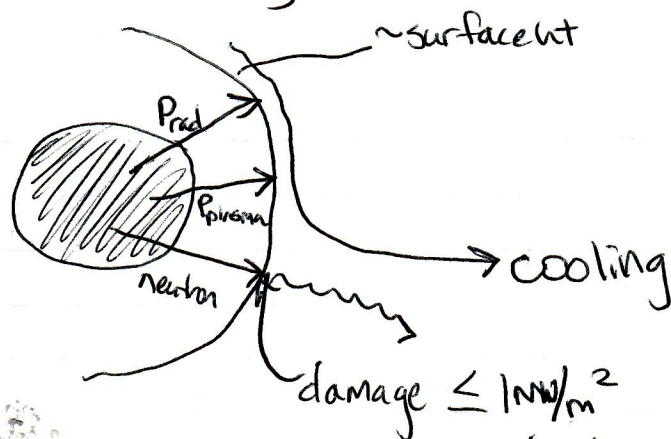 ~surface ht
Prad
Pplasma
neutron
cooling
damage ≤ 1MW/m²